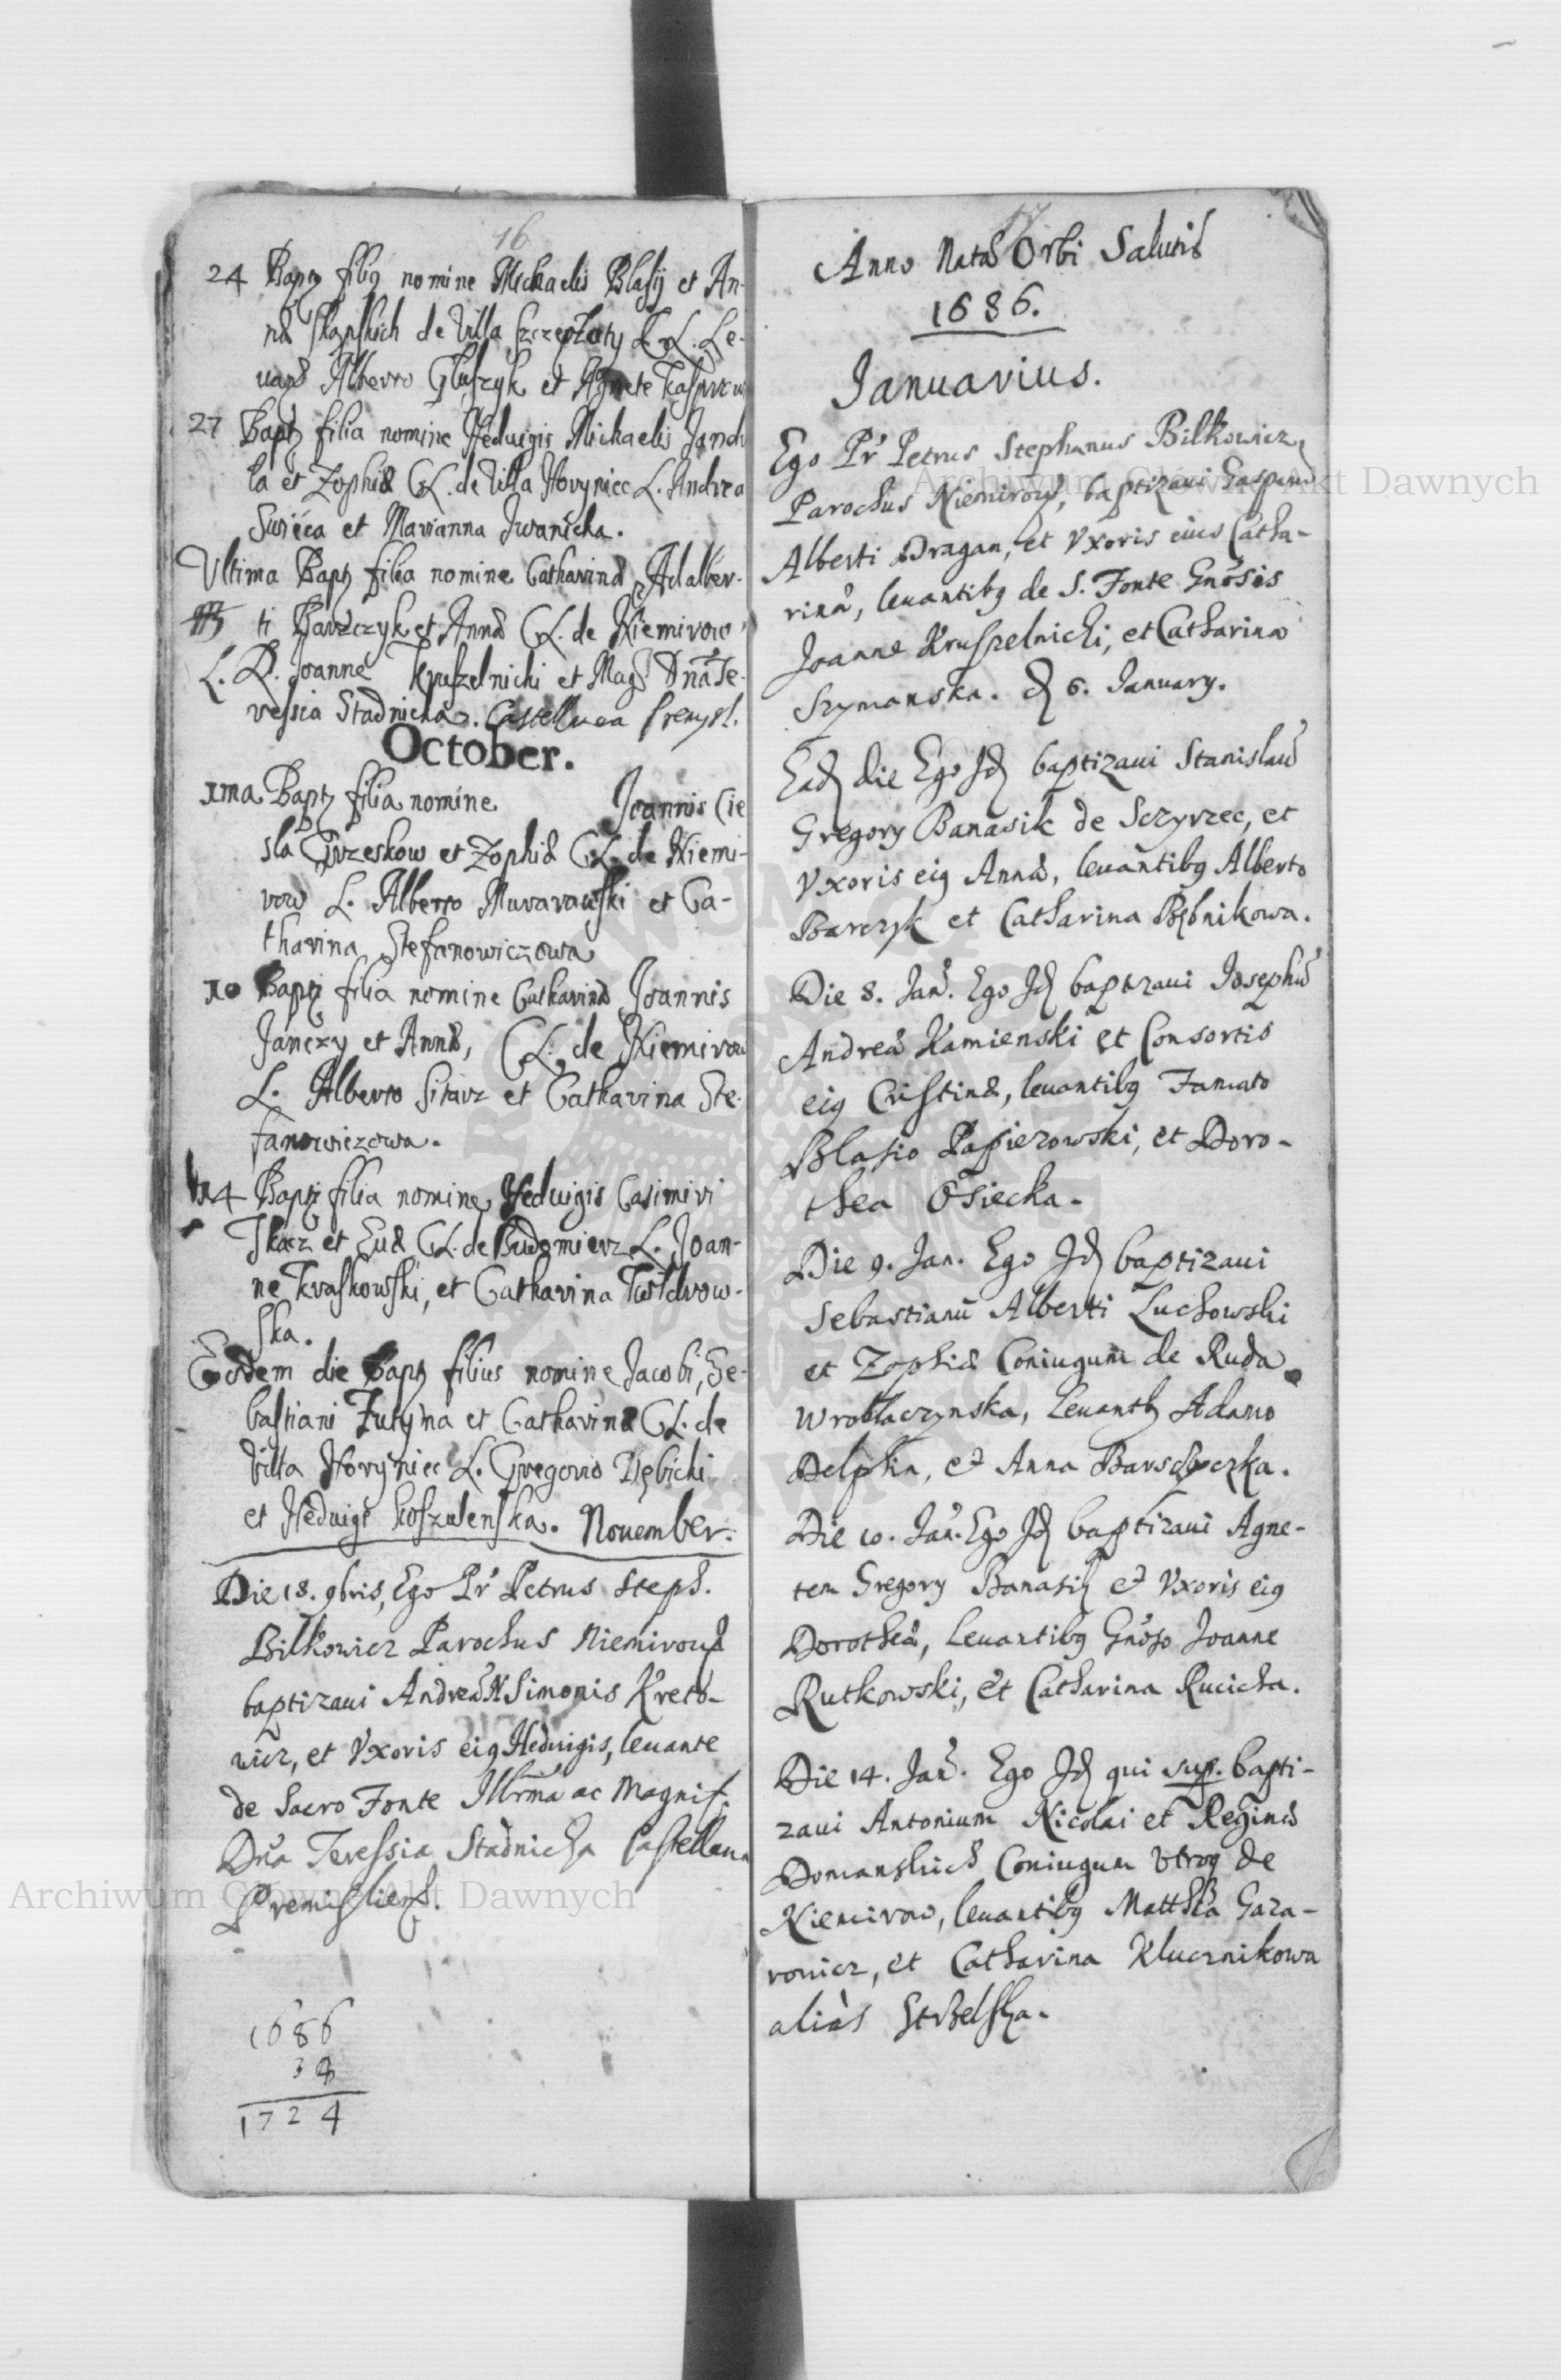 16
24 Baptz filig nomine Michaelis Blasij et An-
næ Skapskich de Villa Szczeploty C. L. Le-
uans Alberto Gluszyk et Agnete Kasprzow
27 Baptz filia nomine Heduigis Michaelis Jandu
la et Zophiæ CL. de Villa Horyniec L. Andrea
Swięca et Marianna Jwanicka.
Vltima Baptz filia nomine Catharinæ Adalber-
ti Barzczyk et Annæ CL. de Niemirow
L. D. Joanne Kruszelnicki et Mag. Dna Te-
ressia Stadnicka. Castellnea Premysl.
October.
1ma Baptz filia nomine Joannis Cie
sla Grzeskow et Zophiæ CL. de Niemi-
row L. Alberto Murarawski et Ca-
tharina Stefanowiczowa
10 Baptz filia nomine Catharinæ Joannis
Janczy et Annæ, CL. de Niemirow
L. Alberto Sitarz et Catharina Ste-
fanowiczowa.
14 Baptz filia nomine Heduigis Casimiri
Tkacz et Euæ CL. de Budomierz L. Joan-
ne Kraskowski, et Catharina Twardrow-
ska.
Eodem die Baptz filius nomine Jacobi, Se-
bastiani Futyma et Catharinæ CL. de
Villa Horyniec L. Gregorio Dębicki
et Heduige Koszulenska. Nouember.
Die 18. 9bris, Ego Pr Petrus Steph.
Bilkowicz Parochus Niemirouię
baptizaui Andreã Simonis Kreto-
wicz, et Vxoris eig Heduigis, leuante
de Sacro Fonte Illrma ac Magnif.
Dna Teressia Stadnicka Castellana
Premisliens.
1686
38
1724
17
Anno Natæ Orbi Salutis
1686.
Januarius.
Ego Pr Petrus Stephanus Bilkowicz
Parochus Niemirow, baptizaui Gasparũ
Alberti Dragan, et Vxoris eius Catha-
rinæ, leuantibg de S. Fonte Gnosis
Joanne Kruszelnicki, et Catharina
Szymanska. d 6. January.
Ead die Ego Jd baptizaui Stanislaũ
Gregory Banasik de Sczyrzec, et
Vxoris eig Annæ, leuantibg Alberto
Barczyk et Catharina Bębnikowa.
Die 8. Jan. Ego Jd baptizaui Josephũ
Andreæ Kamienski et Consortis
eig Cristinæ, leuantibg Famato
Blasio Papierowski, et Doro-
thea Osiecka.
Die 9. Jan. Ego Jd baptizaui
Sebastianũ Alberti Luchowski
et Zophiæ Coniugum de Ruda
Wroblaczynska, Leuantb Adamo
Delphin, et Anna Barsczyczka.
Die 10. Jan. Ego Jd baptizaui Agne-
tem Gregory Banasik et Vxoris eig
Dorotheæ, leuantibg Gnoso Joanne
Rutkowski, et Catharina Rucicka.
Die 14. Jan. Ego Jd qui sup. bapti-
zaui Antonium Nicolai et Reginæ
Domanskich Coniugum Vtroq de
Niemirow, leuantibg Matthia Gaza-
rowicz, et Catharina Klucznikowa
aliàs Strzelska.
Archiwum Główne Akt Dawnych
Archiwum Główne Akt Dawnych